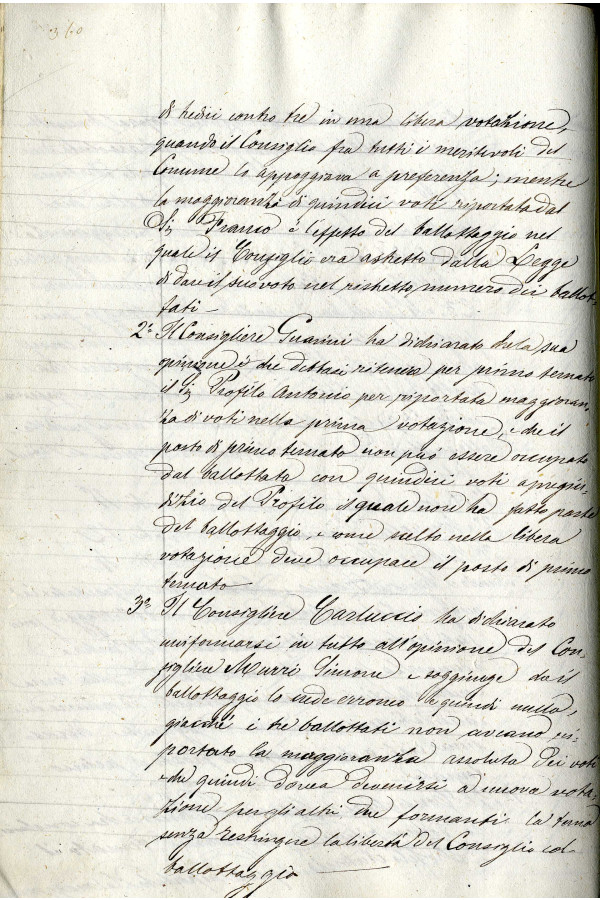 360
di tredici contro tre in una libera votazione,
quando il Consiglio fra tutti i meritevoli del
Comune lo appoggiava a preferenza; mentre
la maggioranza di quindici voti riportata dal
Sig. Franco è l'effetto del ballottaggio nel
quale il Consiglio era astretto dalla Legge
di dare il suo voto nel ristretto numero dei ballot-
tati —
2° Il Consigliere Guarini ha dichiarato che la sua
opinione è che debbasi ritenere per primo ternato
il Sig. Profilo Antonio per riportata maggioran-
za di voti nella prima votazione, e che il
posto di primo ternato non può essere occupato
dal ballottato con quindici voti a pregiu-
dizio del Profilo il quale non ha fatto parte
del ballottaggio, e come scelto nella libera
votazione deve occupare il posto di primo
ternato —
3° Il Consigliere Carluccio ha dichiarato
uniformarsi in tutto all'opinione del Con-
sigliere Murri Simone e soggiunge che il
ballottaggio lo vede erroneo e quindi nullo,
giacché i tre ballottati non aveano ri-
portato la maggioranza assoluta dei voti
che quindi dovea devenirsi a nuova vota-
zione per gli altri due formanti la terna
senza restringere la libertà del Consiglio col
ballottaggio —